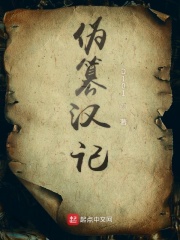 伪篡汉记
著
起点中文网